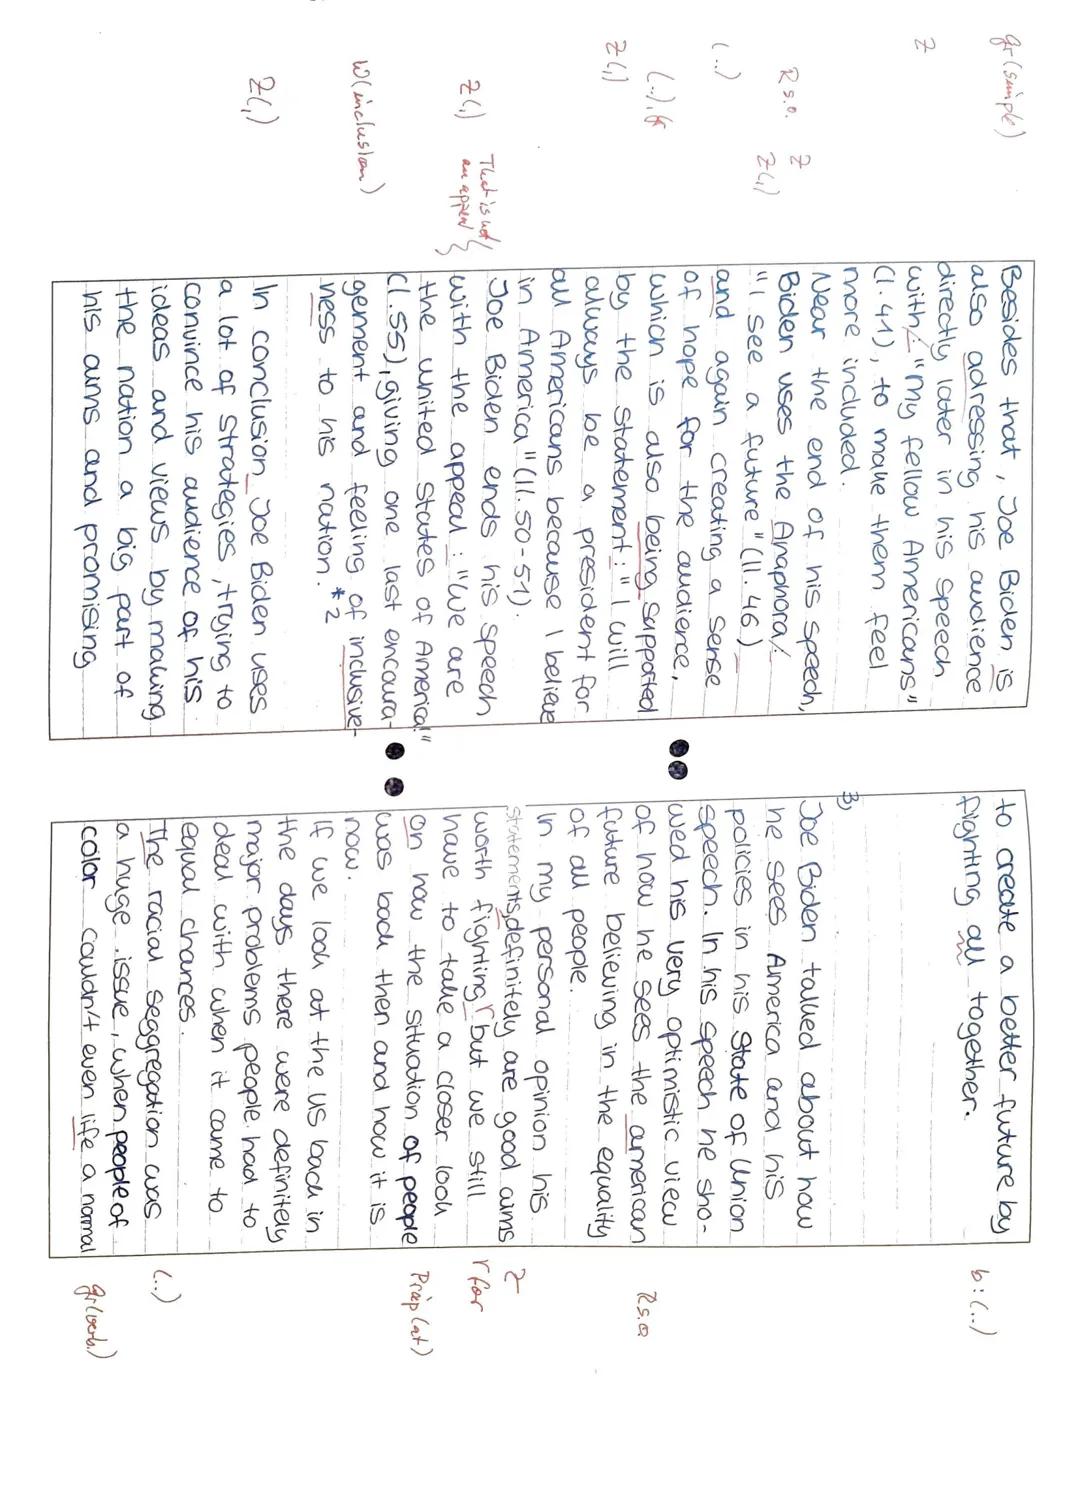 gr (simple)
Z
R s.o. Z
Z(,)
(..)
(..), gr
Z(,)
Z(,) That is not
an appeal
W(inclusion)
Z(,)
Besides that, Joe Biden is
also adressing his audience
directly later in his speech
with: "My fellow Americans"
(l.41), to make them feel
more included.
Near the end of his speech,
Biden uses the Anaphora:
"I see a future" (ll.46)
and again creating a sense
of hope for the audience,
which is also being supported
by the statement: "I will
always be a president for
all Americans because I believe
in America" (ll.50-51).
Joe Biden ends his speech
with the appeal: "We are
the united States of America"
(l.55), giving one last encoura-
gement and feeling of inclusive-
ness to his nation. *2
In conclusion Joe Biden uses
a lot of strategies, trying to
convince his audience of his
ideas and views by making
the nation a big part of
his aims and promising
to create a better future by
fighting all together.
3)
Joe Biden talked about how
he sees America and his
policies in his State of Union
speech. In his speech he sho-
wed his very optimistic view
of how he sees the american
future believing in the equality
of all people.
In my personal opinion his
statements, definitely are good aims
worth fighting but we still
have to take a closer look
on how the situation of people
was back then and how it is
now.
If we look at the US back in
the days there were definitely
major problems people had to
deal with when it came to
equal chances.
The racial seggregation was
a huge issue, when people of
color couldn't even life a normal
b: (..)
R s.o.
Z
r for
Präp (at)
(..)
gr (verb.)